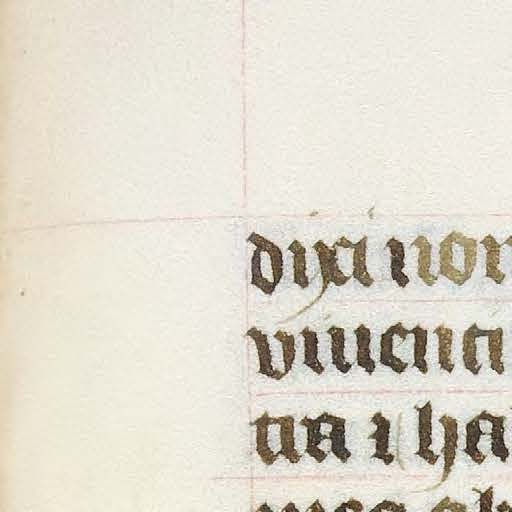 dixi non
viuenti
tra ⁊ ha